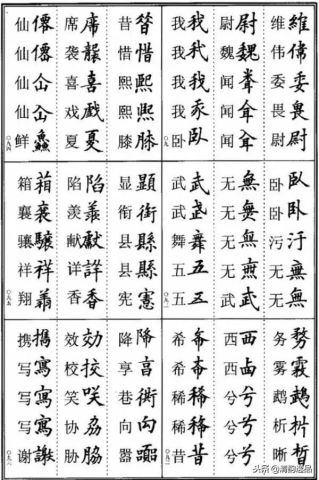 维維伟偉委委畏畏尉尉
尉尉魏魏闻闻闻
我我我我我我我卧臥
〇九一
卧臥卧卧污汙无無无無
无無无無无無无無武武
武武武武舞舞五五五五
务務雾霧鹉析晰晳
西西西兮兮兮兮兮
希希希希稀稀稀稀昔昔
昔惜惜熙熙熙熙膝膝
席席袭襲喜喜戏戲夏夏
仙僊仙僊仙仚仙仚鲜鱻
〇九四
显顯衔銜县縣县縣宪憲
陷陷羡羨献獻详詳香香
箱箱襄襄骧驤祥祥翔翔
〇九五
降降享享巷衖向向嚣
效効校校笑咲协胁脇
携攜写寫写寫写寫谢謝
〇九六
头条 @清韵逸品